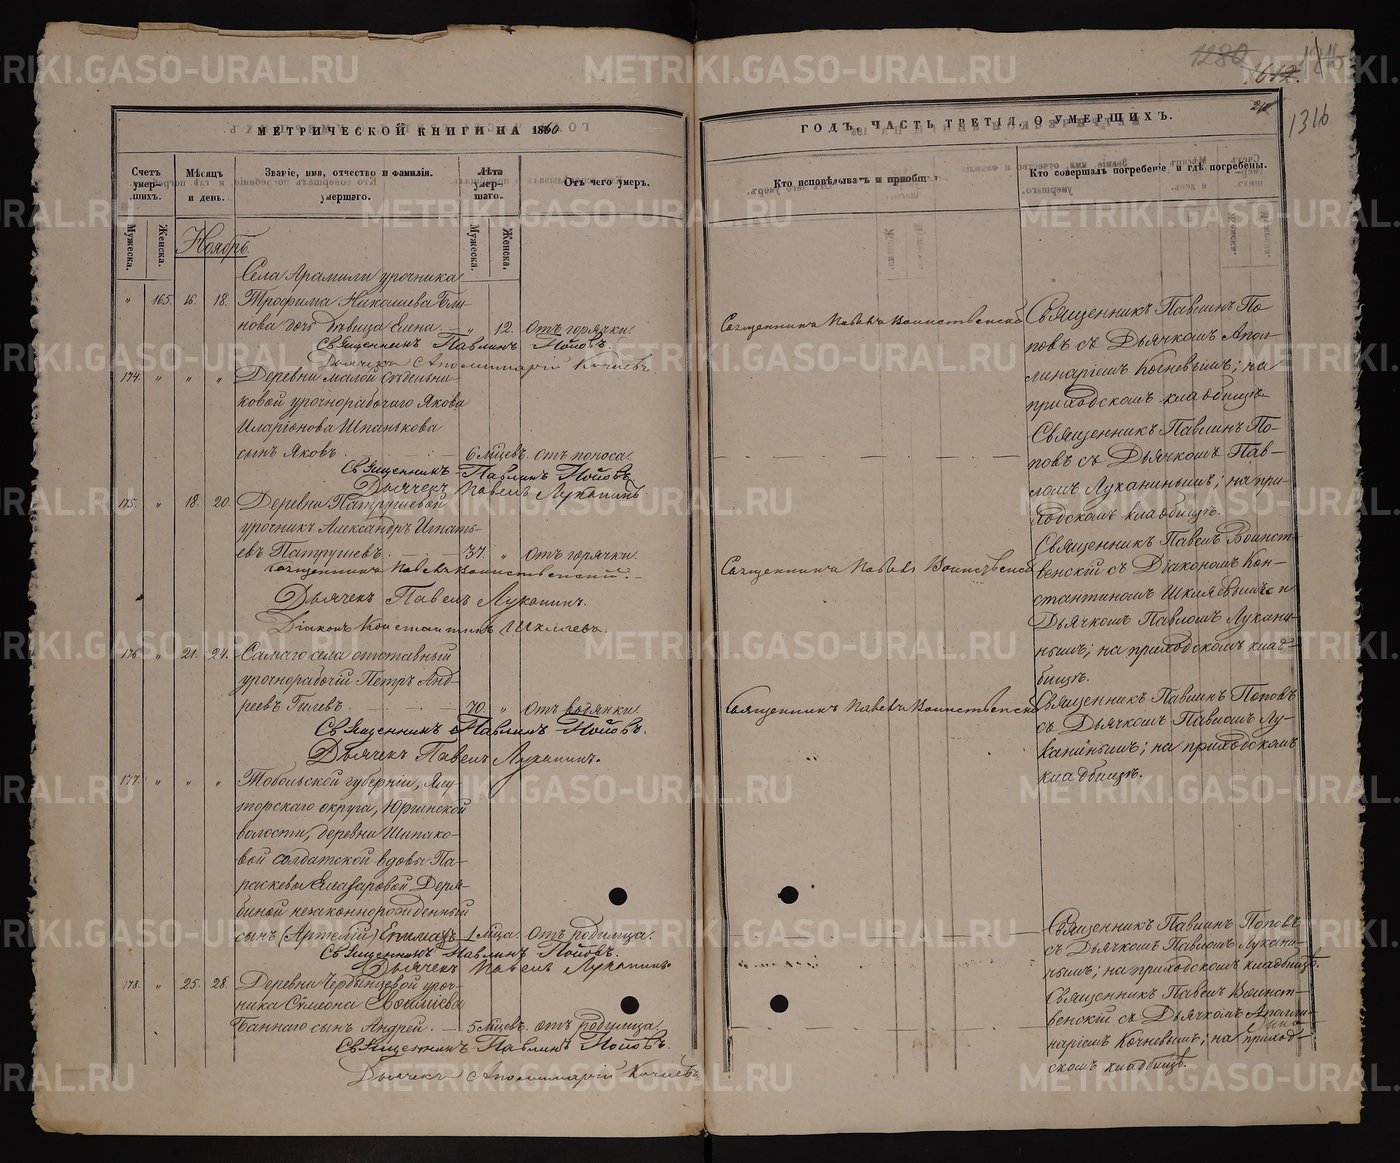 МЕТРИЧЕСКОЙ КНИГИ НА 1860
Счетъ умер-шихъ.
Мѣсяцъ и день.
Званіе, имя, отчество и фамилія умершаго.
Лѣта умер-шаго.
Отъ чего умеръ.
Мужеска.
Женска.
Мужеска.
Женска.
Ноябрь.
Села Арамили урочника
" 165. 16. 18. Трофима Николаева Бли-
нова дочь дѣвица Елена. " 12. Отъ горячки.
Священникъ Павлинъ Поповъ.
Дьячекъ Аполлинарій Кочневъ
174. " " " Деревни Малой Сѣдельни-
ковой урочнорабочаго Якова
Иларіонова Шпанькова
сынъ Яковъ. 6 мѣцевъ. отъ поноса.
Священникъ Павлинъ Поповъ
Дьячекъ Павелъ Луканинъ.
175. " 18. 20. Деревни Патрушевой
урочникъ Александръ Игнать-
евъ Патрушевъ. 37. " отъ горячки.
Священникъ Павелъ Воинственский.
Дьячекъ Павелъ Луканинъ.
Діаконъ Константинъ Шкляевъ.
176. " 21. 24. Самаго села отставный
урочнорабочій Петръ Анд-
реевъ Гилевъ. 70. " Отъ водянки.
Священникъ Павлинъ Поповъ.
Дьячекъ Павелъ Луканинъ.
177. " " " Тобольской губерніи, Ялу-
торскаго округа, Юргинской
волости, деревни Шипако-
вой солдатской вдовы Па-
раскевы Елеазаровой Деря-
биной незаконнорожденный
сынъ (Артемій) 1 мѣца. отъ родимца.
Священникъ Павлинъ Поповъ.
Дьячекъ Павелъ Луканинъ.
178. " 25. 28. Деревни уроч-
ника Сѵмеона
Баннаго сынъ Андрей. 5 мѣцевъ. отъ родимца
Священникъ Павлинъ Поповъ.
Дьячекъ Аполлинарій Кочневъ
1280
612.
1316
ГОДЪ, ЧАСТЬ ТРЕТІЯ, О УМЕРШИХЪ.
Кто исповѣдывалъ и пріобщалъ
Кто совершалъ погребеніе и гдѣ погребены.
Священникъ Павелъ Воинственской
Священникъ Павлинъ По-
повъ съ Дьячкомъ Апол-
линаріемъ Кочневымъ; на
приходскомъ кладбищѣ
Священникъ Павлинъ По-
повъ съ Дьячкомъ Пав-
ломъ Луканинымъ; на при-
ходскомъ кладбищѣ.
Священникъ Павелъ Воинственской
Священникъ Павелъ Воинст-
венскій съ Діакономъ Кон-
стантиномъ Шкляевымъ и
Дьячкомъ Павломъ Лукани-
нымъ; на приходскомъ клад-
бищѣ.
Священникъ Павелъ Воинственской
Священникъ Павлинъ Поповъ
съ Дьячкомъ Павломъ Лу-
канинымъ; на приходскомъ
кладбищѣ.
Священникъ Павлинъ Поповъ
съ Дьячкомъ Павломъ Лукани-
нымъ; на приходскомъ кладбищѣ.
Священникъ Павелъ Воинст-
венскій съ Дьячкомъ Аполли-
наріемъ Кочневымъ; на приход-
скомъ кладбищѣ.
METRIKI.GASO-URAL.RU